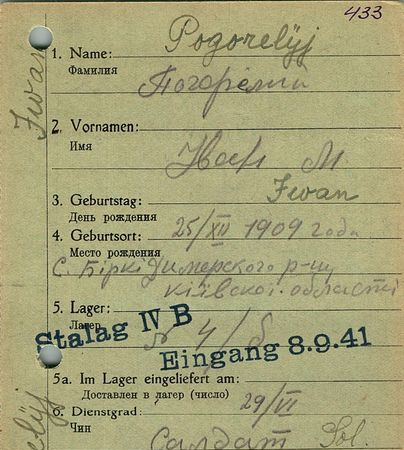 433
Pogorelyj
1. Name:
Фамилия
Погорелий
2. Vornamen:
Имя
Иван М
Iwan
3. Geburtstag:
День рождения
25/XII 1909 года
4. Geburtsort:
Место рождения
с. Біркі Димерского р-ну
Київскої області
5. Lager:
Лагер
№ 4/B
Stalag IV B
Eingang 8.9.41
5a. Im Lager eingeliefert am:
Доставлен в лагер (число)
29/VI
6. Dienstgrad:
Чин
Салдат Sol.
Iwan